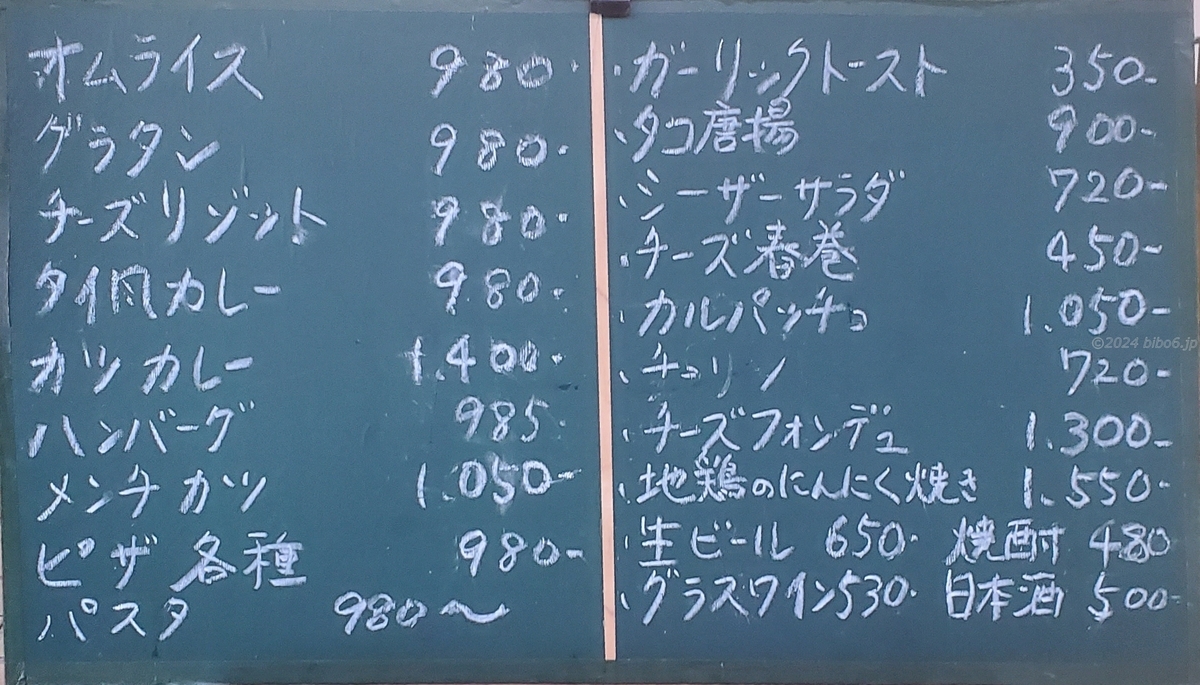 オムライス 980.
グラタン 980.
チーズリゾット 980.
タイ風カレー 980.
カツカレー 1.400.
ハンバーグ 985.
メンチカツ 1.050-
ピザ 各種 980-
パスタ 980〜
・ガーリックトースト 350-
・タコ唐揚 900-
・シーザーサラダ 720-
・チーズ春巻 450-
・カルパッチョ 1.050-
・チョリソ 720-
・チーズフォンデュ 1.300-
・地鶏のにんにく焼き 1.550-
・生ビール 650. 焼酎 480
・グラスワイン530. 日本酒 500-
©2024 bibo6.jp